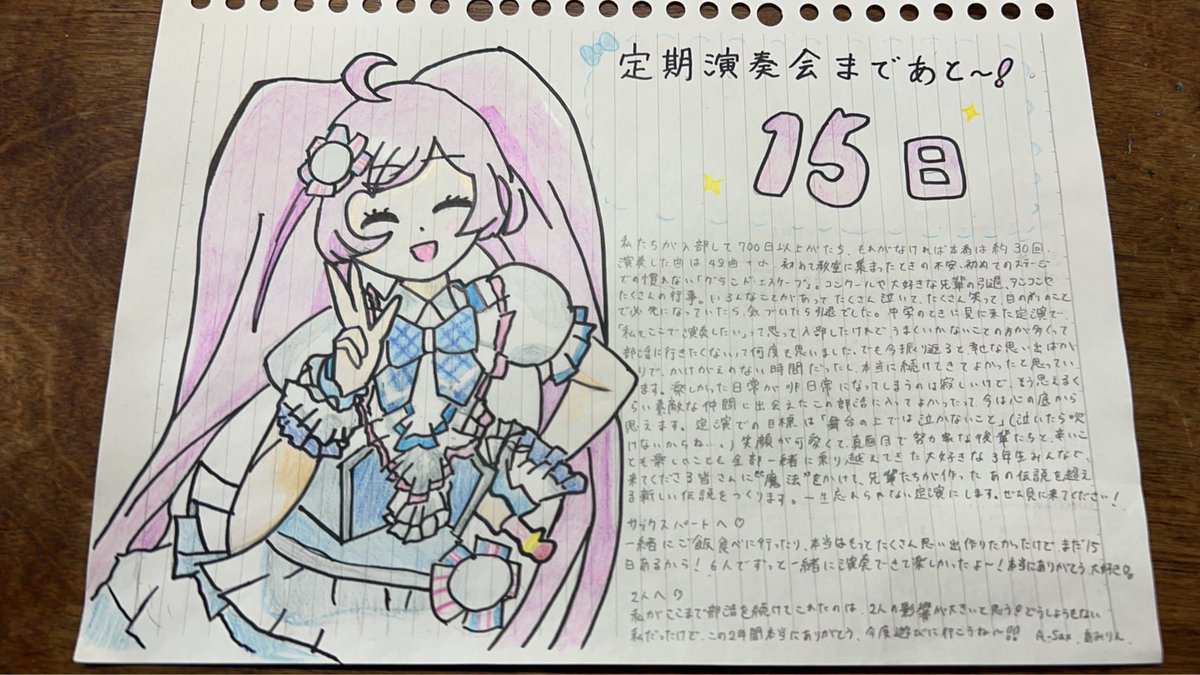 定期演奏会まであと〜!
15日
私たちが入部して700日以上がたち、もれがなければ本番は約30回、
演奏した曲は42曲+α、初めて教室に集まったときの不安、初めてのステージ
での慣れない「グランド・エスケープ」。コンクールや大好きな先輩の引退、アンコンや
たくさんの行事。いろんなことがあってたくさん泣いて、たくさん笑って、目の前のこと
で必死になっていたら、気づいたら引退でした。中学のときに見に来た定演で
「私もここで演奏したい」って思って入部したけれどうまくいかないことの方が多くって
部活に行きたくないって何度も思いました。でも今振り返ると幸せな思い出ばか
りで、かけがえのない時間だったし、本当に続けてきてよかったと思ってい
ます。楽しかった日常が非日常になってしまうのは寂しいけど、そう思えるく
らい素敵な仲間に出会えたこの部活に入ってよかったって、今は心の底から
思えます。定演での目標は「舞台の上では泣かないこと」(泣いたら吹
けないからね…。)笑顔が可愛くて、真面目で努力家な後輩たちと、辛いこ
とも楽しいことも全部一緒に乗り越えてきた大好きな3年生みんなで、
来てくださる皆さんに"魔法"をかけて、先輩たちが作ったあの伝説を超え
る新しい伝説をつくります。一生忘れられない定演にします。ぜひ見に来てください!
サックスパートへ♡
一緒にご飯食べに行ったり、本当はもっとたくさん思い出作りたかったけど、まだ15
日あるから!6人でずっと一緒に演奏できて楽しかったよ〜!本当にありがとう大好き
2人へ♡
私がここまで部活を続けてこれたのは、2人の影響が大きいと思う!どうしようもない
私だったけど、この2年間本当にありがとう、今度遊びに行こうね〜!!
A.Sax